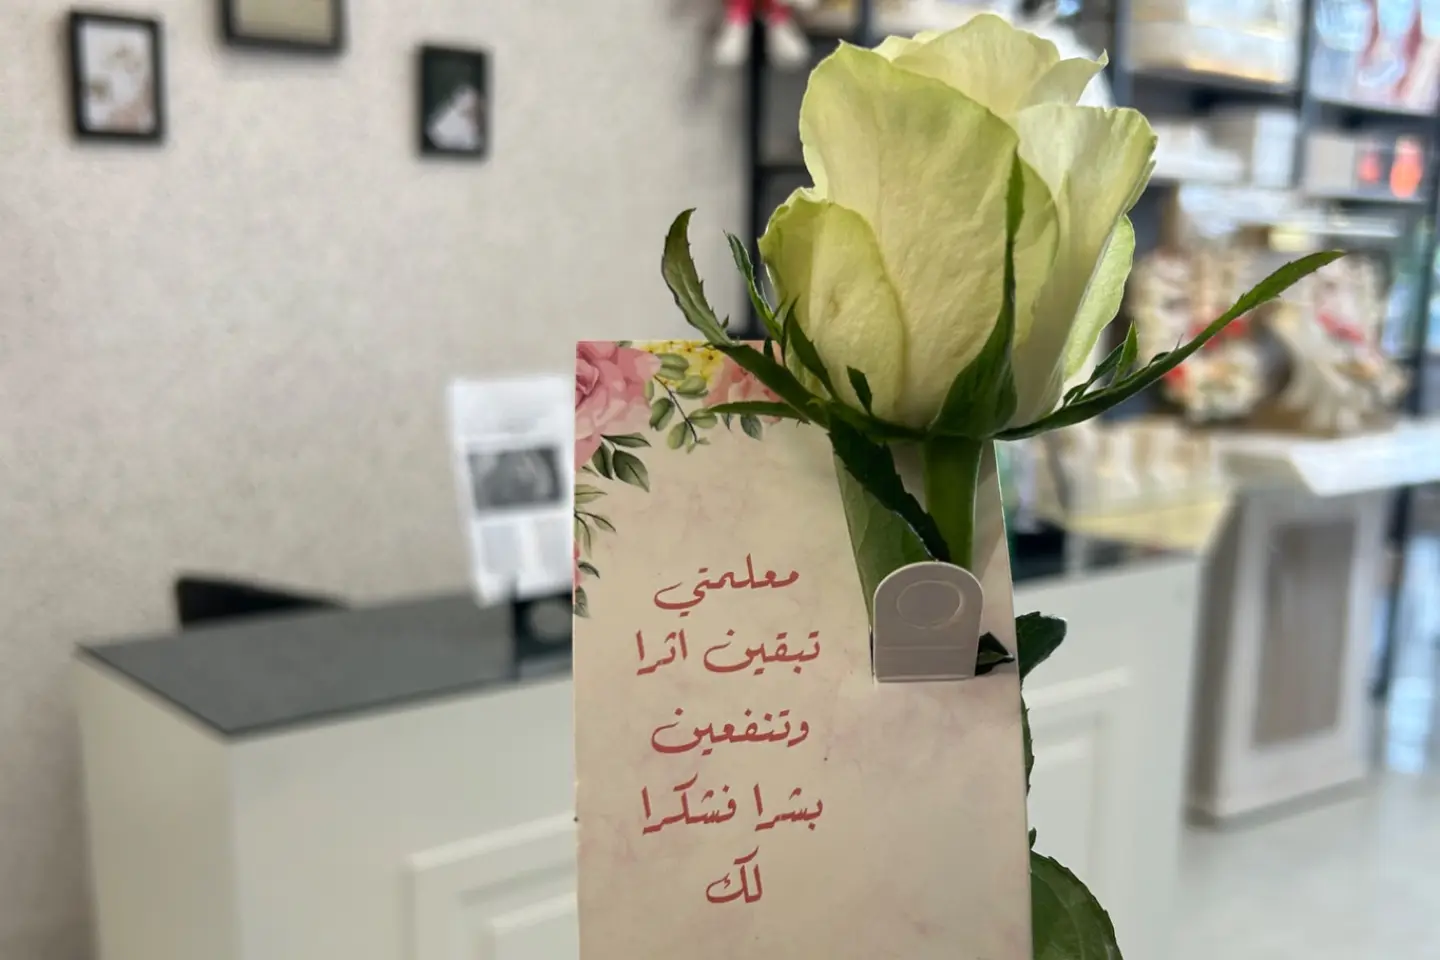 معلمتي
تبقين اثرا
وتنفعين
بشرا فشكرا
لك